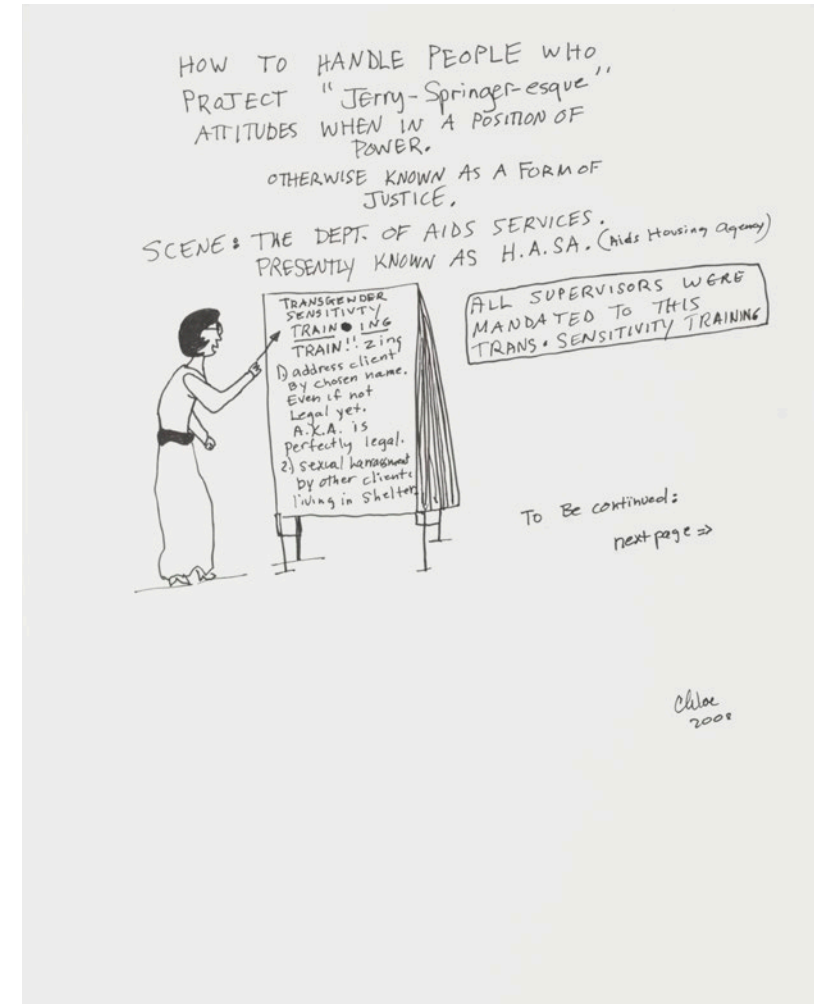 HOW TO HANDLE PEOPLE WHO
PROJECT "Jerry-Springer-esque"
ATTITUDES WHEN IN A POSITION OF
POWER.
OTHERWISE KNOWN AS A FORM OF
JUSTICE.
SCENE: THE DEPT. OF AIDS SERVICES.
PRESENTLY KNOWN AS H.A.SA. (Aids Housing Agency)
TRANSGENDER
SENSITIVTY
TRAIN•ING
TRAIN!!zing
1) address client
By chosen name.
Even if not
Legal yet.
A.K.A. is
perfectly legal.
2) sexual harrasment
by other clients
living in Shelter
ALL SUPERVISORS WERE
MANDATED TO THIS
TRANS. SENSITIVITY TRAINING
To Be continued:
next page ⇒
Chloe
2008